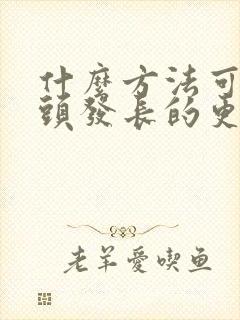 什麼方法可
頭發長的更
老羊愛喫鱼